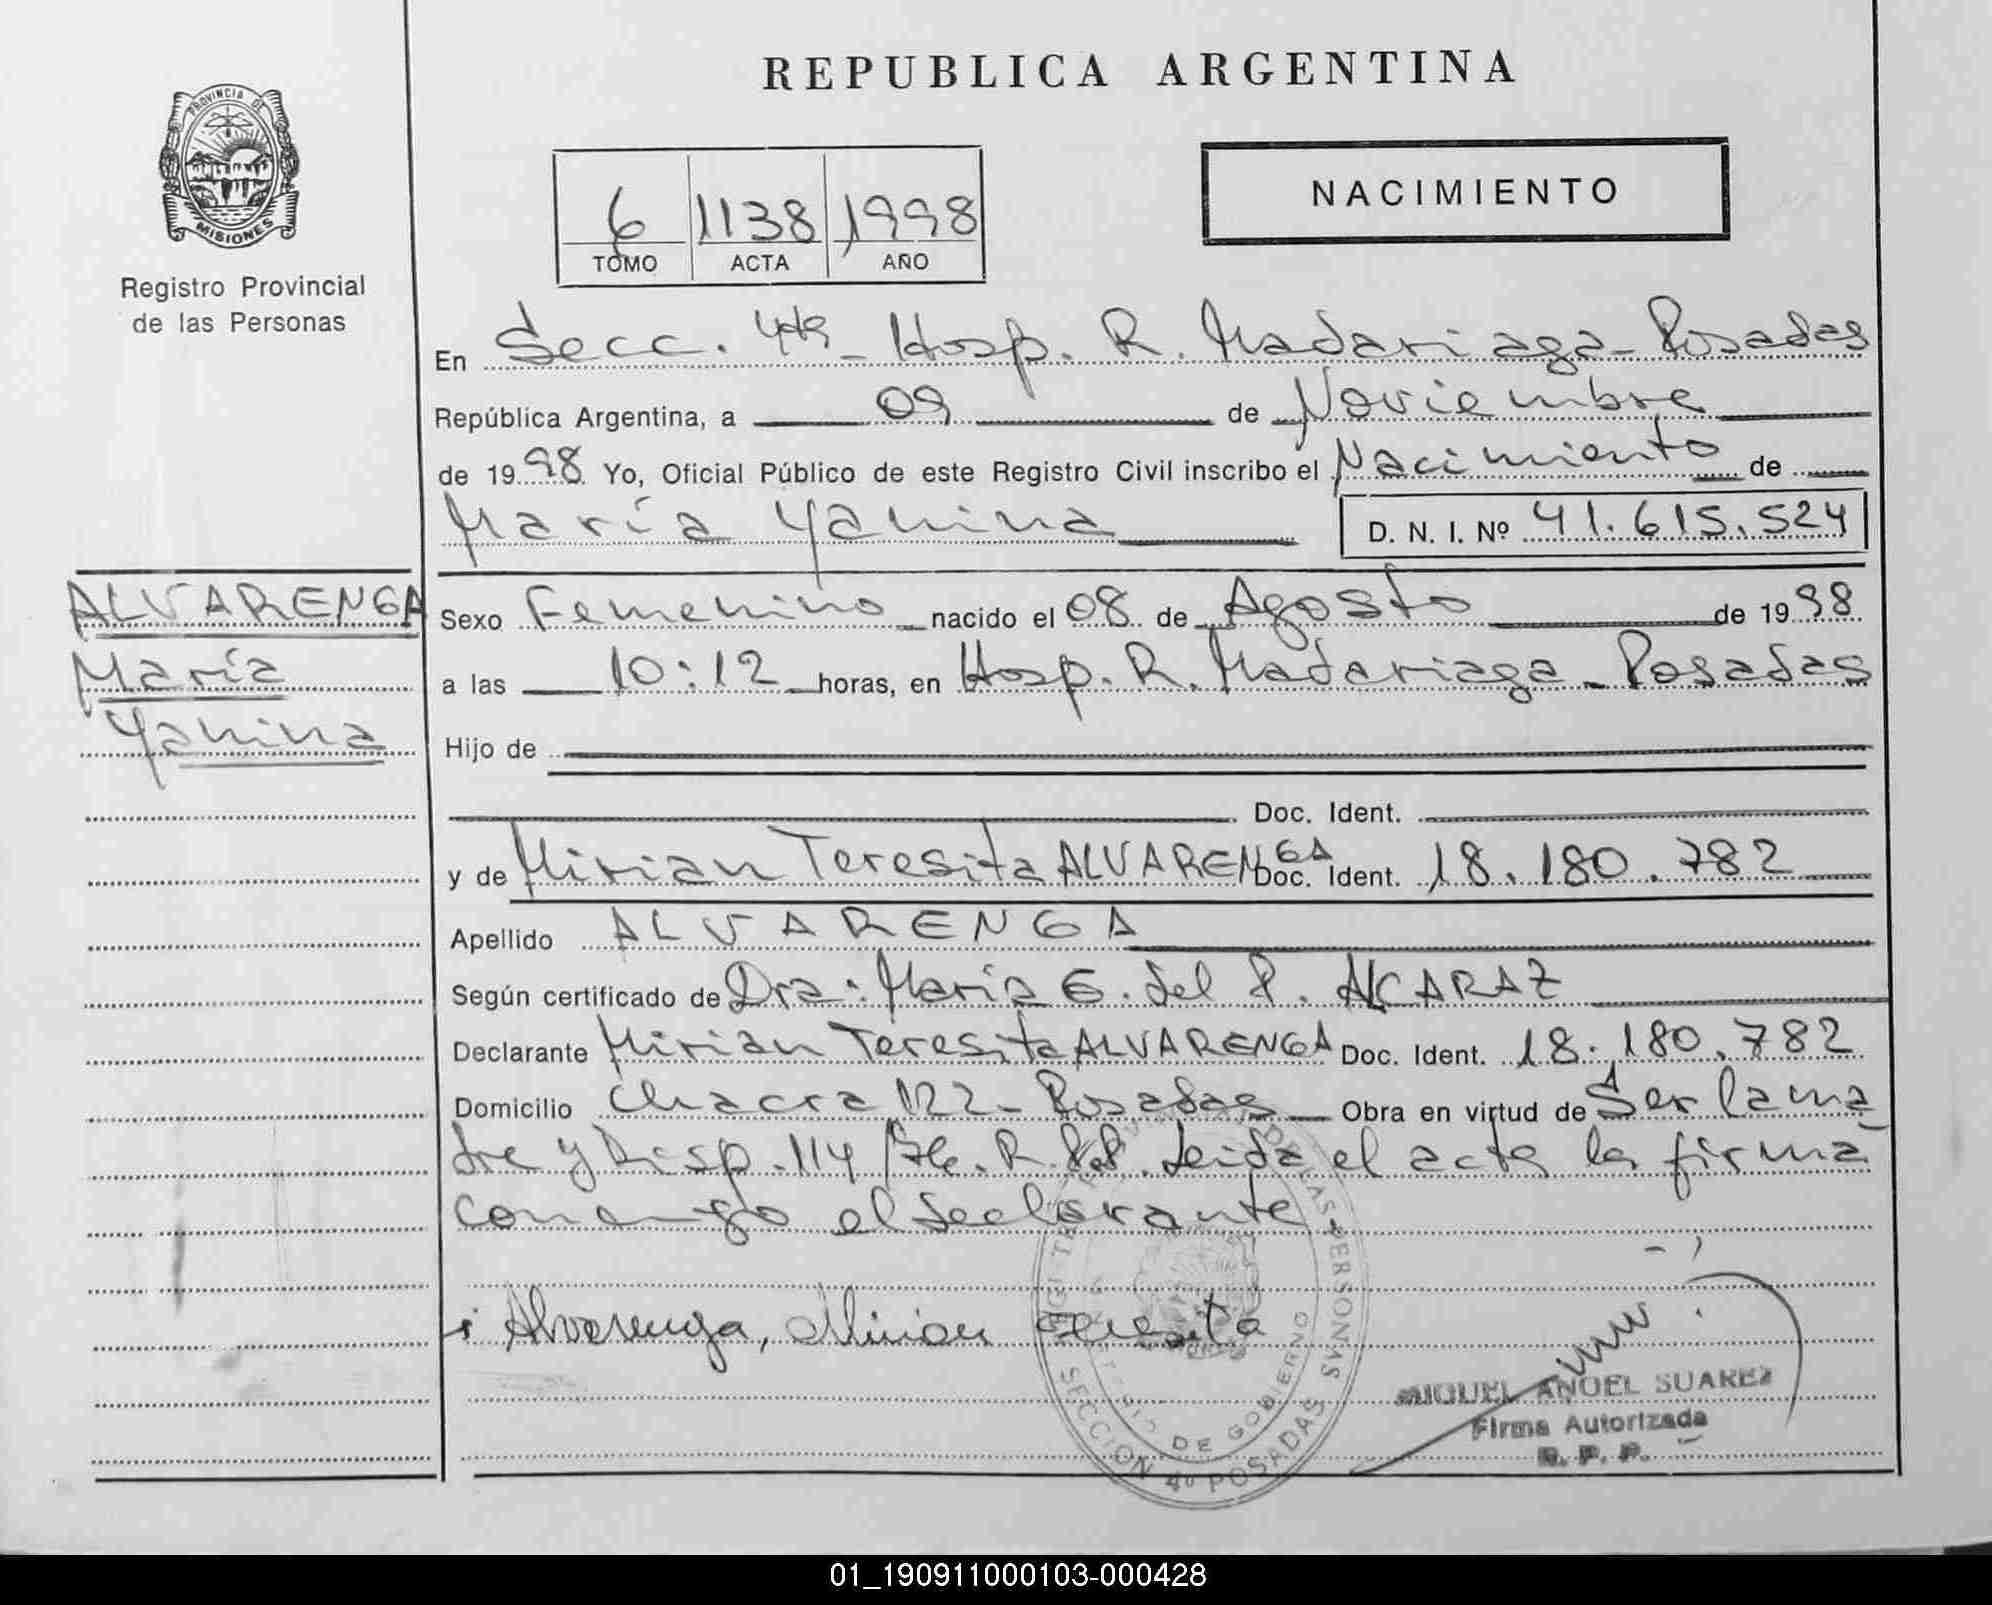 REPUBLICA ARGENTINA
PROVINCIA DE
MISIONES
Registro Provincial
de las Personas
6 1138 1998
TOMO ACTA AÑO
NACIMIENTO
En Secc. 4ta - Hosp. R. Madariaga - Posadas
República Argentina, a 09 de Noviembre
de 1998 Yo, Oficial Público de este Registro Civil inscribo el Nacimiento de
María Yanina D. N. I. Nº 41.615.524
ALVARENGA
María
Yanina
Sexo Femenino nacido el 08 de Agosto de 1998
a las 10:12 horas, en Hosp. R. Madariaga - Posadas
Hijo de
Doc. Ident.
y de Mirian Teresita ALVARENGA Doc. Ident. 18.180.782
Apellido ALVARENGA
Según certificado de Dra: María E. del P. ALCARAZ
Declarante Mirian Teresita ALVARENGA Doc. Ident. 18.180.782
Domicilio Chacra 122 - Posadas Obra en virtud de Ser la ma
dre y Disp. 114 R. Leida el acta la firma
conmigo el declarante
Alvarenga, Mirian Teresita
DE LAS PERSONAS
DE GOBIERNO
SECCION 4º POSADAS
MIGUEL ANGEL SUAREZ
Firma Autorizada
R. P. P.
01_190911000103-000428